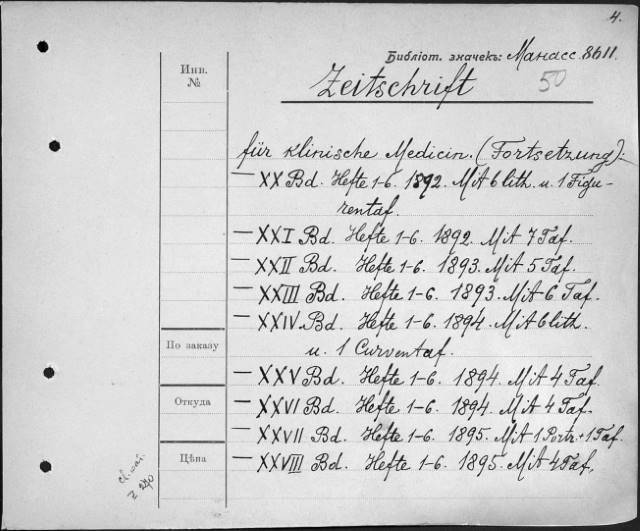 4.
Библіот. значекъ: Манасс. 8611.
Инв.
№
Zeitschrift
50
für klinische Medicin. (Fortsetzung):
— XX Bd. Hefte 1-6. 1892. Mit 6 lith. u. 1 Figu-
rentaf.
— XXI Bd. Hefte 1-6. 1892. Mit 7 Taf.
— XXII Bd. Hefte 1-6. 1893. Mit 5 Taf.
— XXIII Bd. Hefte 1-6. 1893. Mit 6 Taf.
— XXIV Bd. Hefte 1-6. 1894. Mit 6 lith.
u. 1 Curventaf.
— XXV Bd. Hefte 1-6. 1894. Mit 4 Taf.
— XXVI Bd. Hefte 1-6. 1894. Mit 4 Taf.
— XXVII Bd. Hefte 1-6. 1895. Mit 1 Portr. + 1 Taf.
— XXVIII Bd. Hefte 1-6. 1895. Mit 4 Taf.
По заказу
Откуда
Цѣна